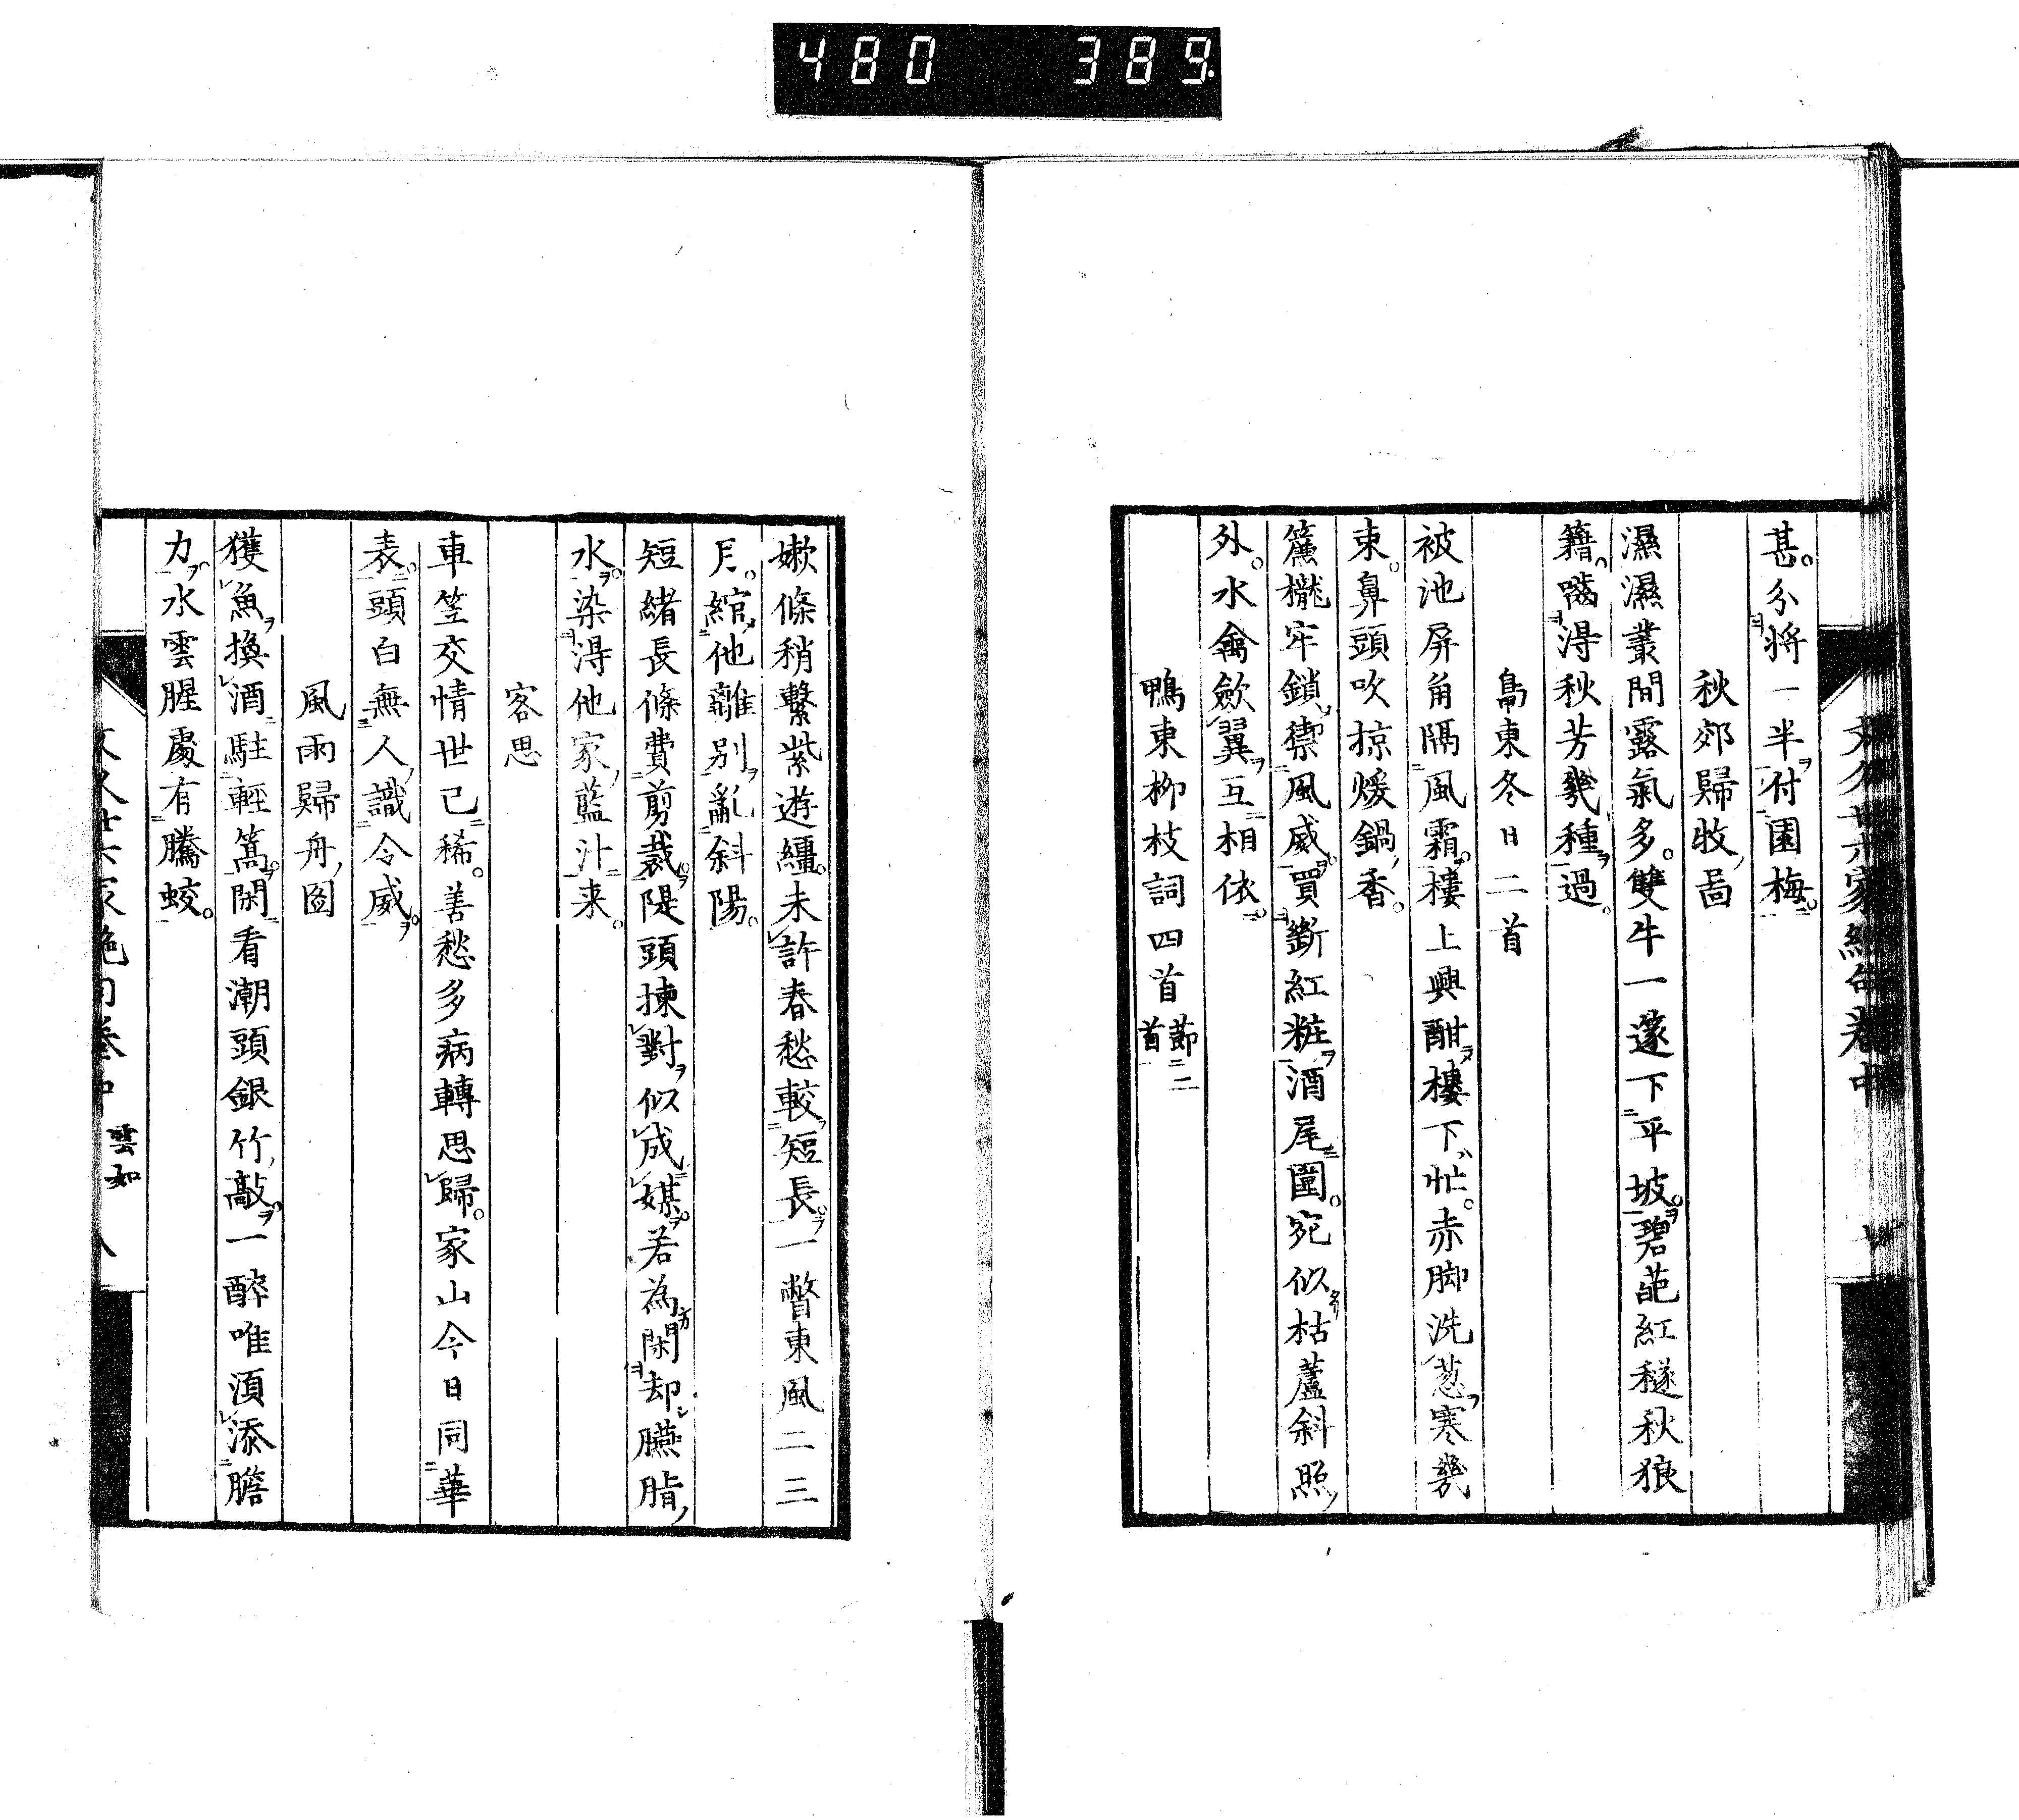 480 389
甚。分將一半付園梅。
秋郊歸牧啚
濕濕叢間露氣多。雙牛一篴下平坡。碧葩紅穟秋狼
籍。囓淂秋芳幾種過。
鳧東冬日二首
被池屏角隔風霜。樓上興酣樓下忙。赤脚洗葱寒幾
束。鼻頭吹掠煖鍋香。
簾櫳牢鎖禦風威。買斷紅粧酒尾圍。宛似枯蘆斜照
外。水禽歛翼互相依。
鴨東柳枝詞四首節二首
嫰條稍繫紫遊繮。未許春愁較短長。一瞥東風二三
月。綰他離別亂斜陽。
短緒長條費剪裁。隄頭揀對似成媒。若為閑却臙脂
水。染淂他家藍汁来。
客思
車笠交情世已稀。善愁多病轉思歸。家山今日同華
表。頭白無人識令威。
風雨歸舟圖
獲魚換酒駐輕篙。閑看潮頭銀竹敲。一醉唯湏添膽
力。水雲腥處有騰蛟。
雲如